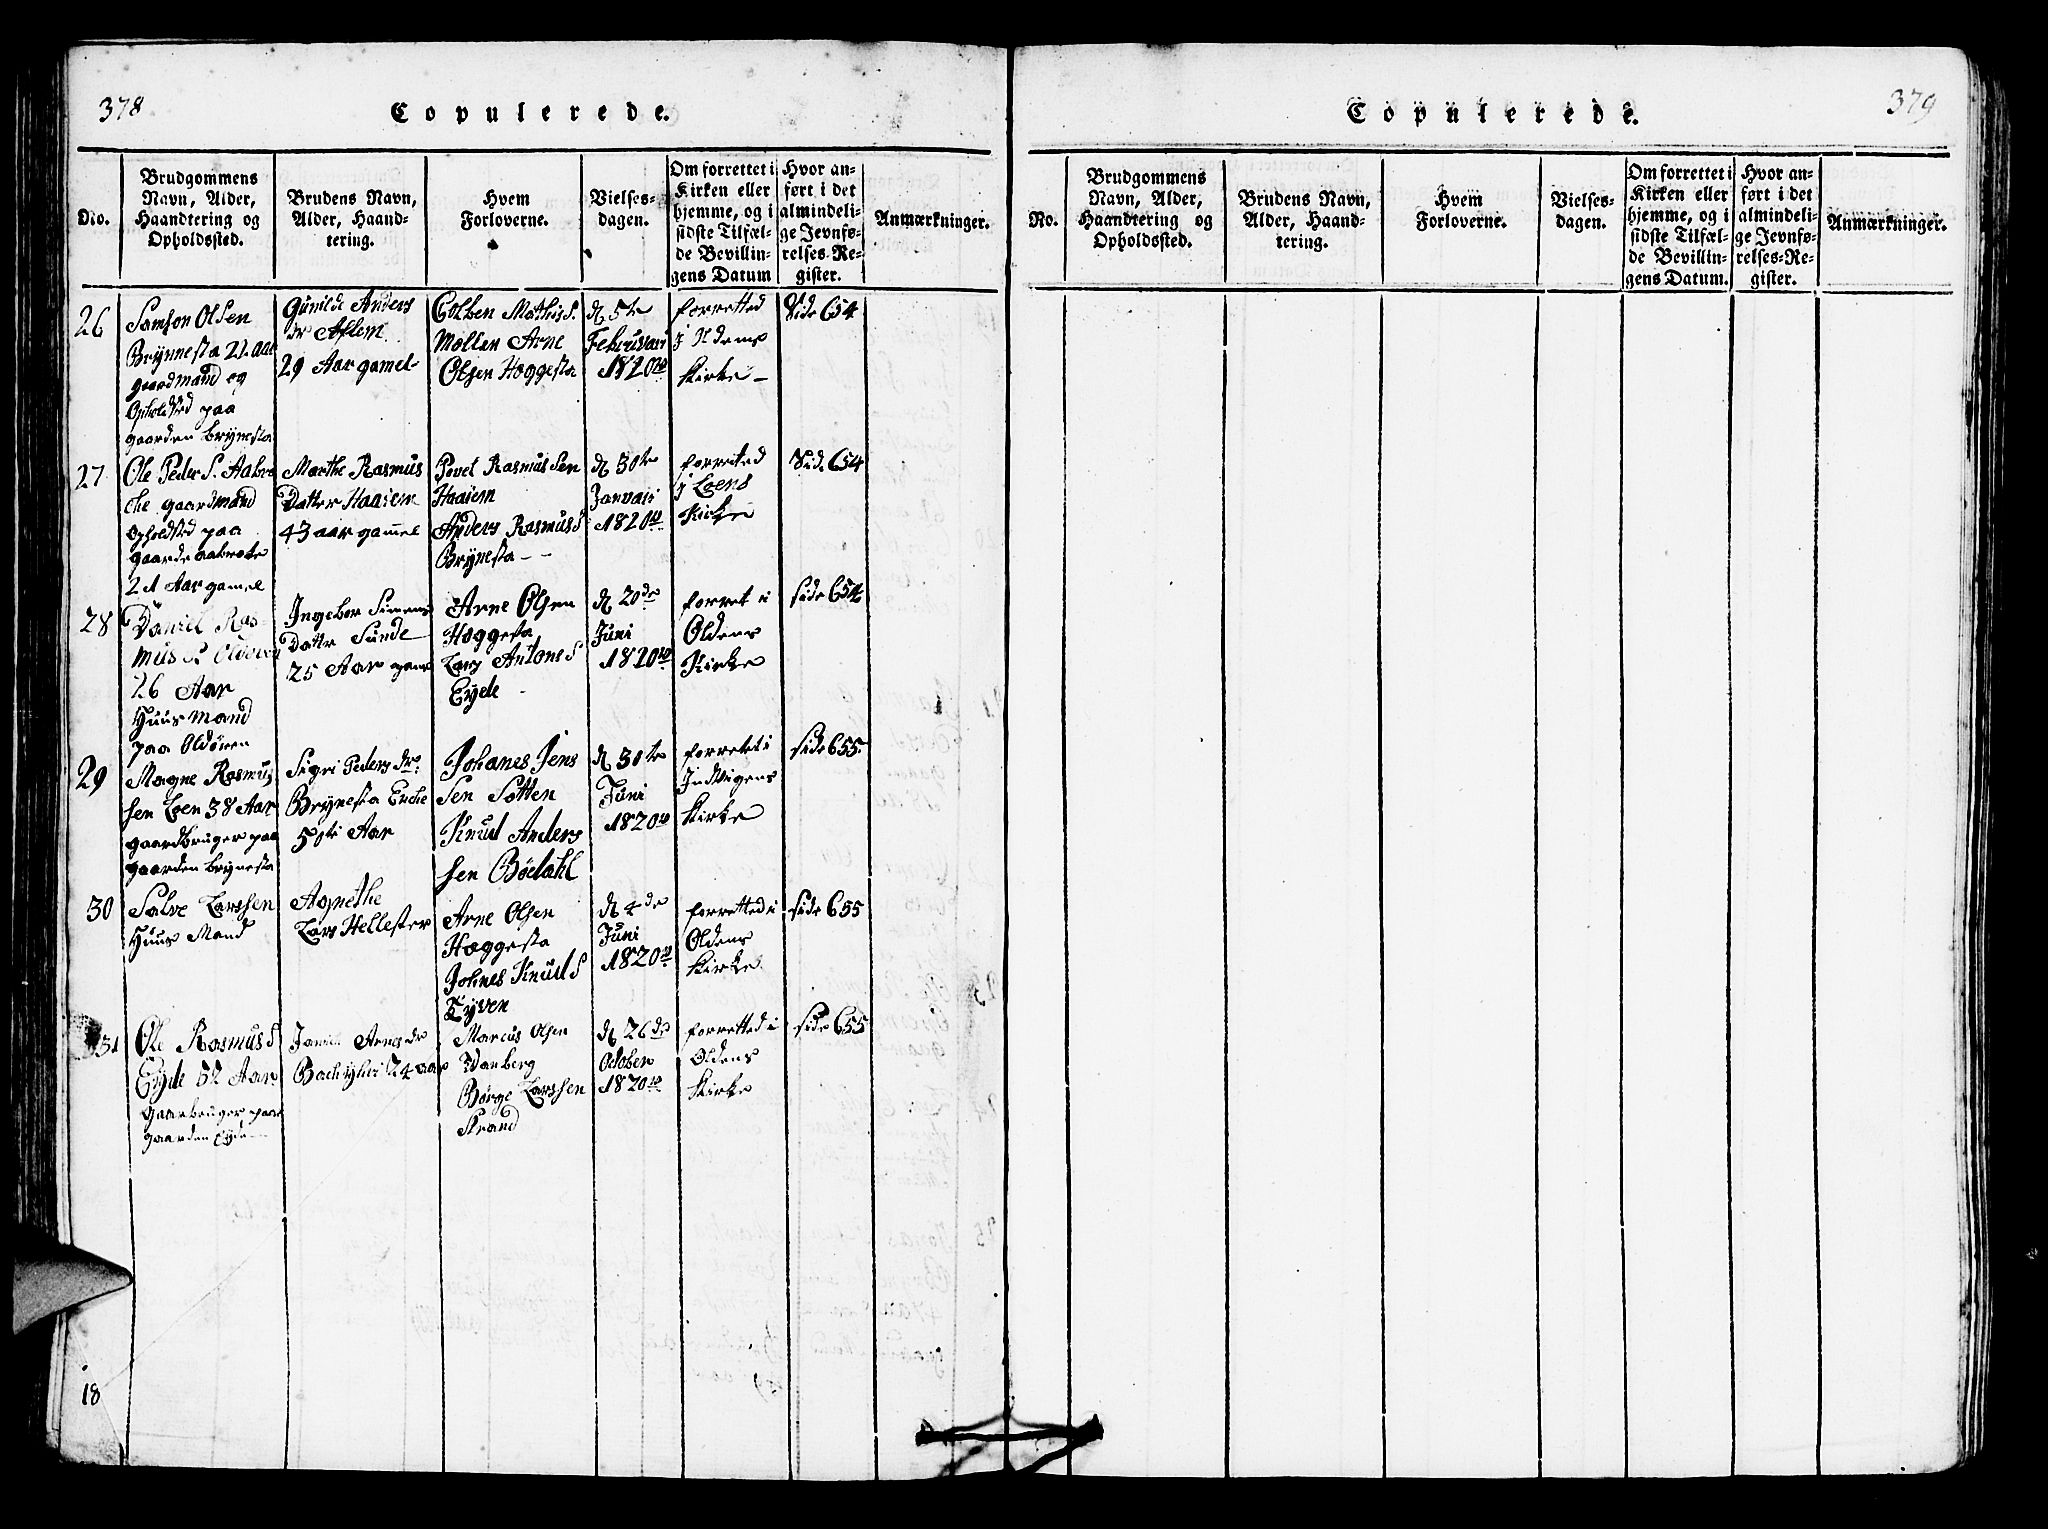 378
Copulerede.
No.
Brudgommens
Navn, Alder,
Haandtering og
Opholdssted.
Brudens Navn,
Alder, Haand-
tering.
Hvem
Forloverne.
Vielses-
dagen.
Om forrettet i
Kirken eller
hjemme, og i
sidste Tilfæl-
de Bevillin-
gens Datum
Hvor an-
ført i det
almindeli-
ge Jevnfø-
relses-Re-
gister.
Anmærkninger.
26
Samson Olsen
Brynnesta 21. aar
gaardmand og
Opholdsted paa
gaarden brynesta
Gunilde Anders
dr Aslem
29 Aar gamel
Colben Mathis S.
Mollen Arne
Olsen Hoggesta
d 5te
Februari
1820
forretted
i Oldens
Kirke
Side 654
27
Ole Peder S. Aabre
che gaardmand
Opholdsted paa
gaarde aabreke
21 Aar gamel
Marthe Rasmus
Datter Haaiem
43 aar gammel
Povel Rasmus Sen
Haaiem
Anders Rasmus S
Brynesta
d 30te
Januari
1820
forretted
i Loens
Kirke
Side 654
28
Daniel Ras
mus S. Oldören
26 Aar
Huusmand
paa Oldören
Ingebor Simens
Datter Sunde
25 Aar gam
Arne Olsen
Hæggesta
Lars Antons S
Eyde
d 20de
Juni
1820
forret i
Oldens
Kirke
side 654
29
Magne Rasmus
sen Loen 38 Aar
gaardbruger paa
gaarden brynesta
Sigri Peders dr
Brynesta Enche
50ti Aar
Johanes Jens
Sen Sotten
Knud Anders
sen Bödahl
d 30te
Juni
1820
forrettet i
Indvigens
Kirke
side 655.
30
Salve Larssen
Huus Mand
Agnethe
Lars Hellester
Arne Olsen
Hæggesta
Johnes Knud S
Tyven
d 4de
Juni
1820
forretted i
Oldens
Kirke
side 655
31
Ole Rasmus S
Eyde 52 Aar
gaarbruger paa
gaarden Eyde
Arnes dr
24 aar
Marcus Olsen
Börge Larssen
Strand
d 26de
October
1820
forretted i
Oldens
Kirke
side 655
18
Copulerede.
379
No.
Brudgommens
Navn, Alder,
Haandtering og
Opholdssted.
Brudens Navn,
Alder, Haand-
tering.
Hvem
Forloverne.
Vielses-
dagen.
Om forrettet i
Kirken eller
hjemme, og i
sidste Tilfæl-
de Bevillin-
gens Datum.
Hvor an-
ført i det
almindeli-
ge Jevnfø-
relses-Re-
gister.
Anmærkninger.